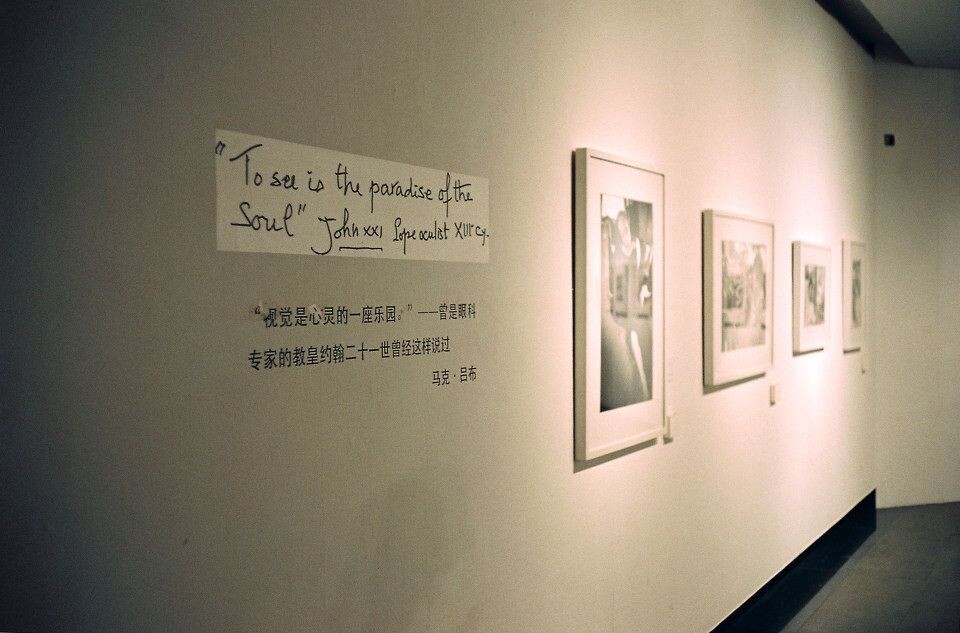 "To see is the paradise of the
Soul" John XXI Pope oculist XIIIᵉ Cy.
“视觉是心灵的一座乐园。”——曾是眼科
专家的教皇约翰二十一世曾经这样说过
马克·吕布